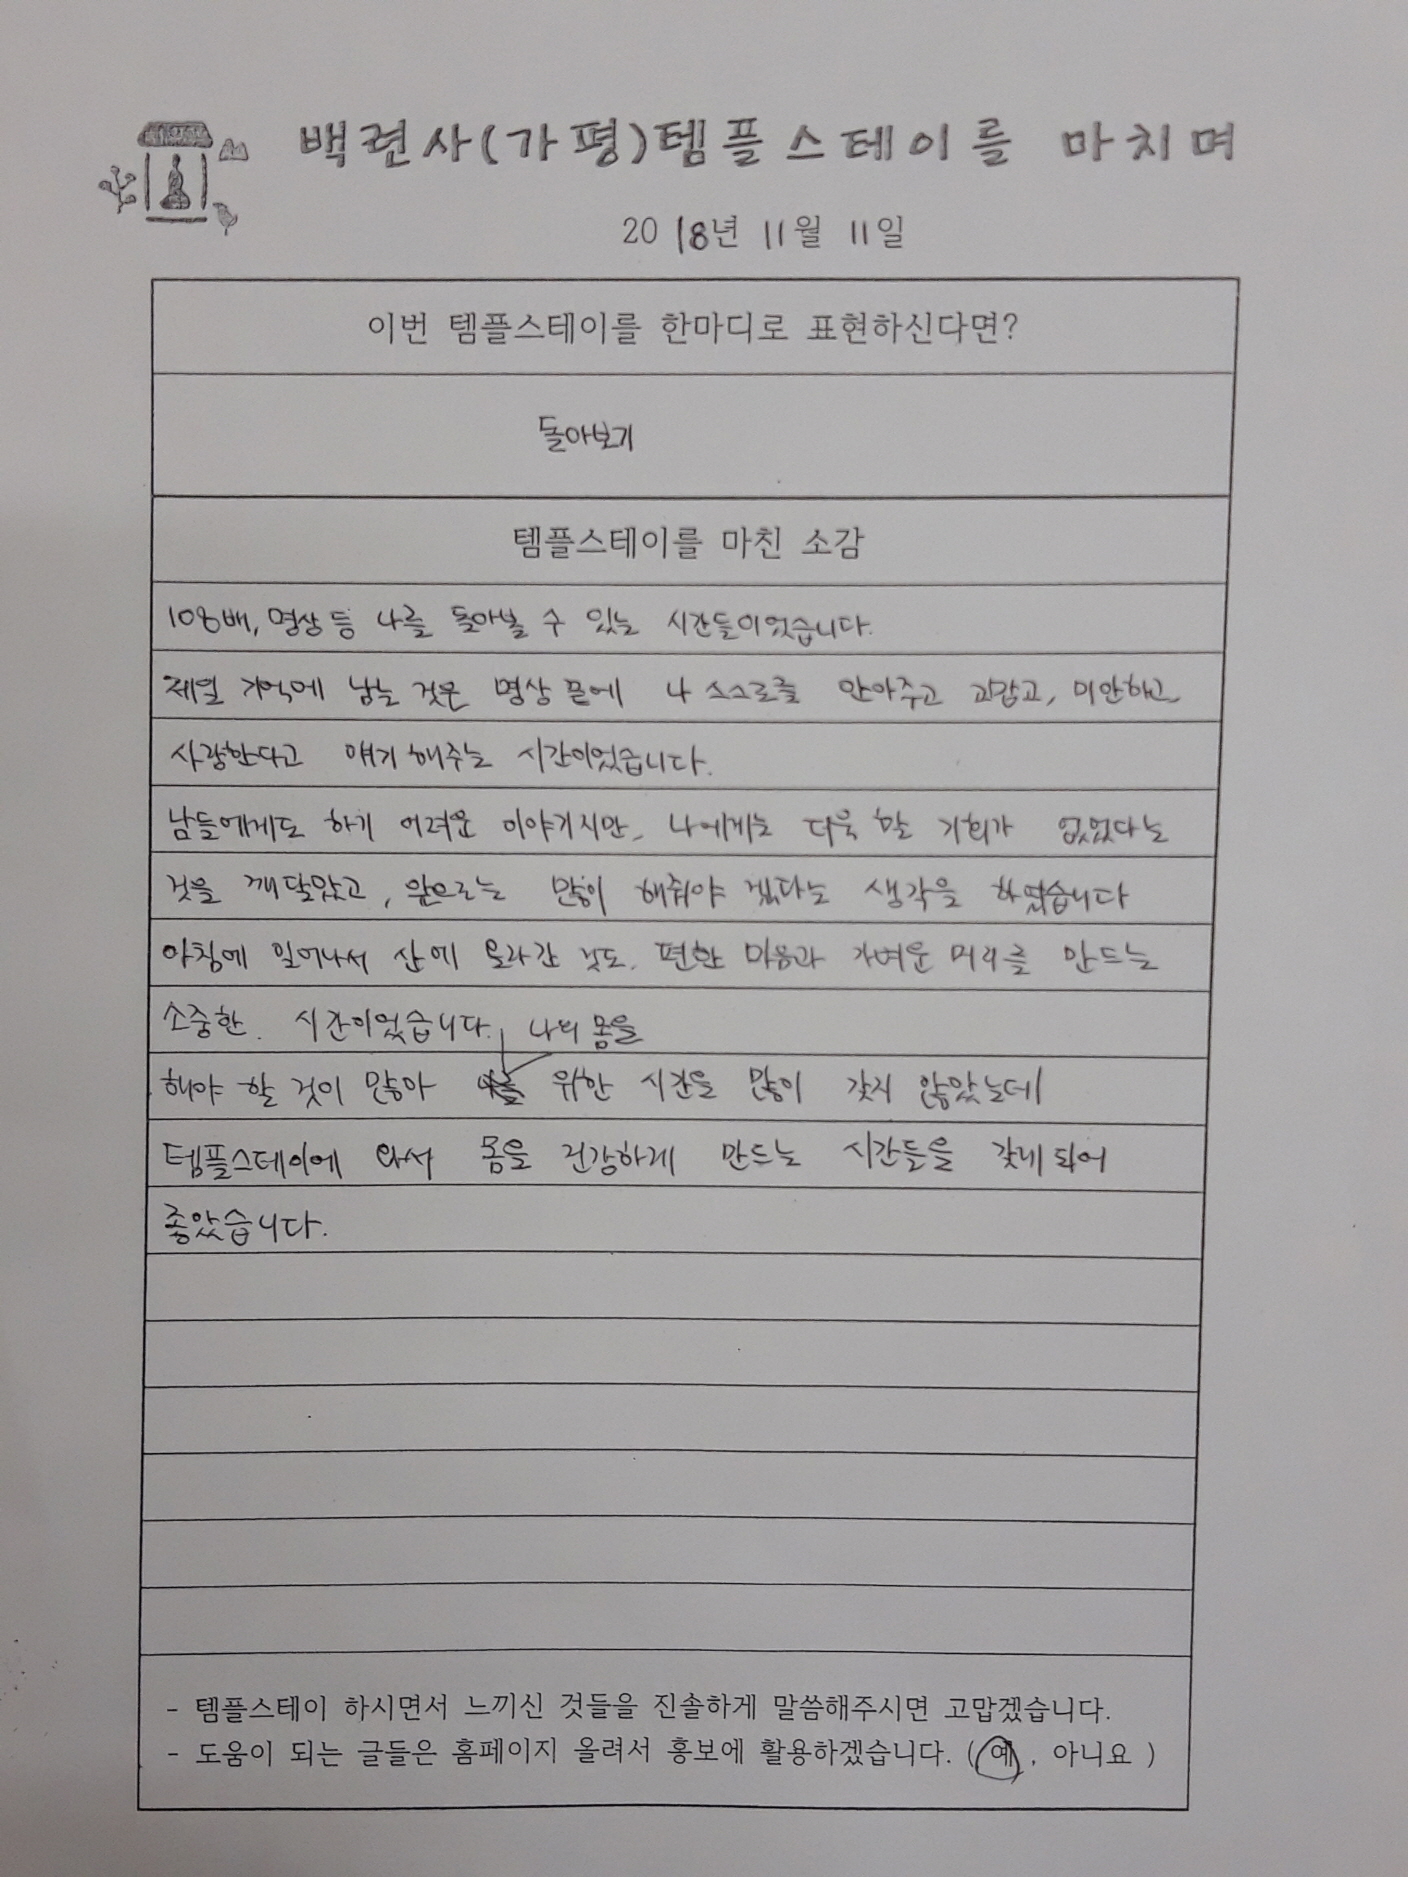 백련사(가평)템플스테이를 마치며
2018년 11월 11일
이번 템플스테이를 한마디로 표현하신다면?
돌아보기
템플스테이를 마친 소감
108배, 명상 등 나를 돌아볼 수 있는 시간들이었습니다.
제일 기억에 남는 것은 명상 끝에 나 스스로를 안아주고 고맙고, 미안하고,
사랑한다고 얘기해주는 시간이었습니다.
남들에게도 하기 어려운 이야기지만, 나에게는 더욱 할 기회가 없었다는
것을 깨달았고, 앞으로는 많이 해줘야 겠다는 생각을 하였습니다
아침에 일어나서 산에 올라간 것도, 편한 마음과 가벼운 머리를 만드는
소중한 시간이었습니다.
나의 몸을
해야 할 것이 많아 위한 시간을 많이 갖지 않았는데
템플스테이에 와서 몸을 건강하게 만드는 시간들을 갖게 되어
좋았습니다.
- 템플스테이 하시면서 느끼신 것들을 진솔하게 말씀해주시면 고맙겠습니다.
- 도움이 되는 글들은 홈페이지 올려서 홍보에 활용하겠습니다. ( 예 , 아니요 )